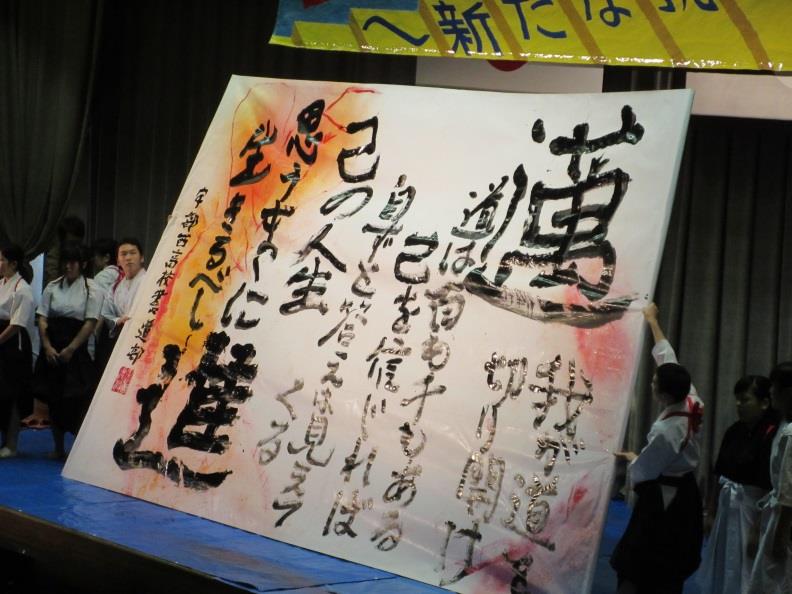 へ新たな
邁
我が道を
切り開け
道は百も千もある
己を信じれば
自ずと答えは見えてくる
己の人生
思うまゝに
生きるべし
進
宇部西高校書道部